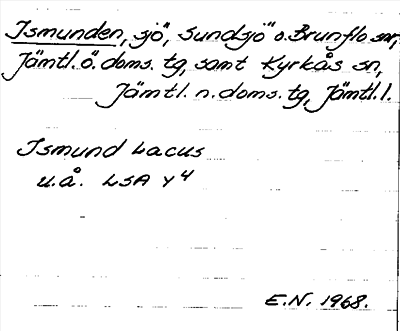 Ismunden, sjö, Sundsjö o. Brunflo snr,
Jämtl. ö. doms. tg, samt Kyrkås sn,
Jämtl. n. doms. tg, Jämtl. l.
Ismund Lacus
u.å. LSA Y4
E.N. 1968.